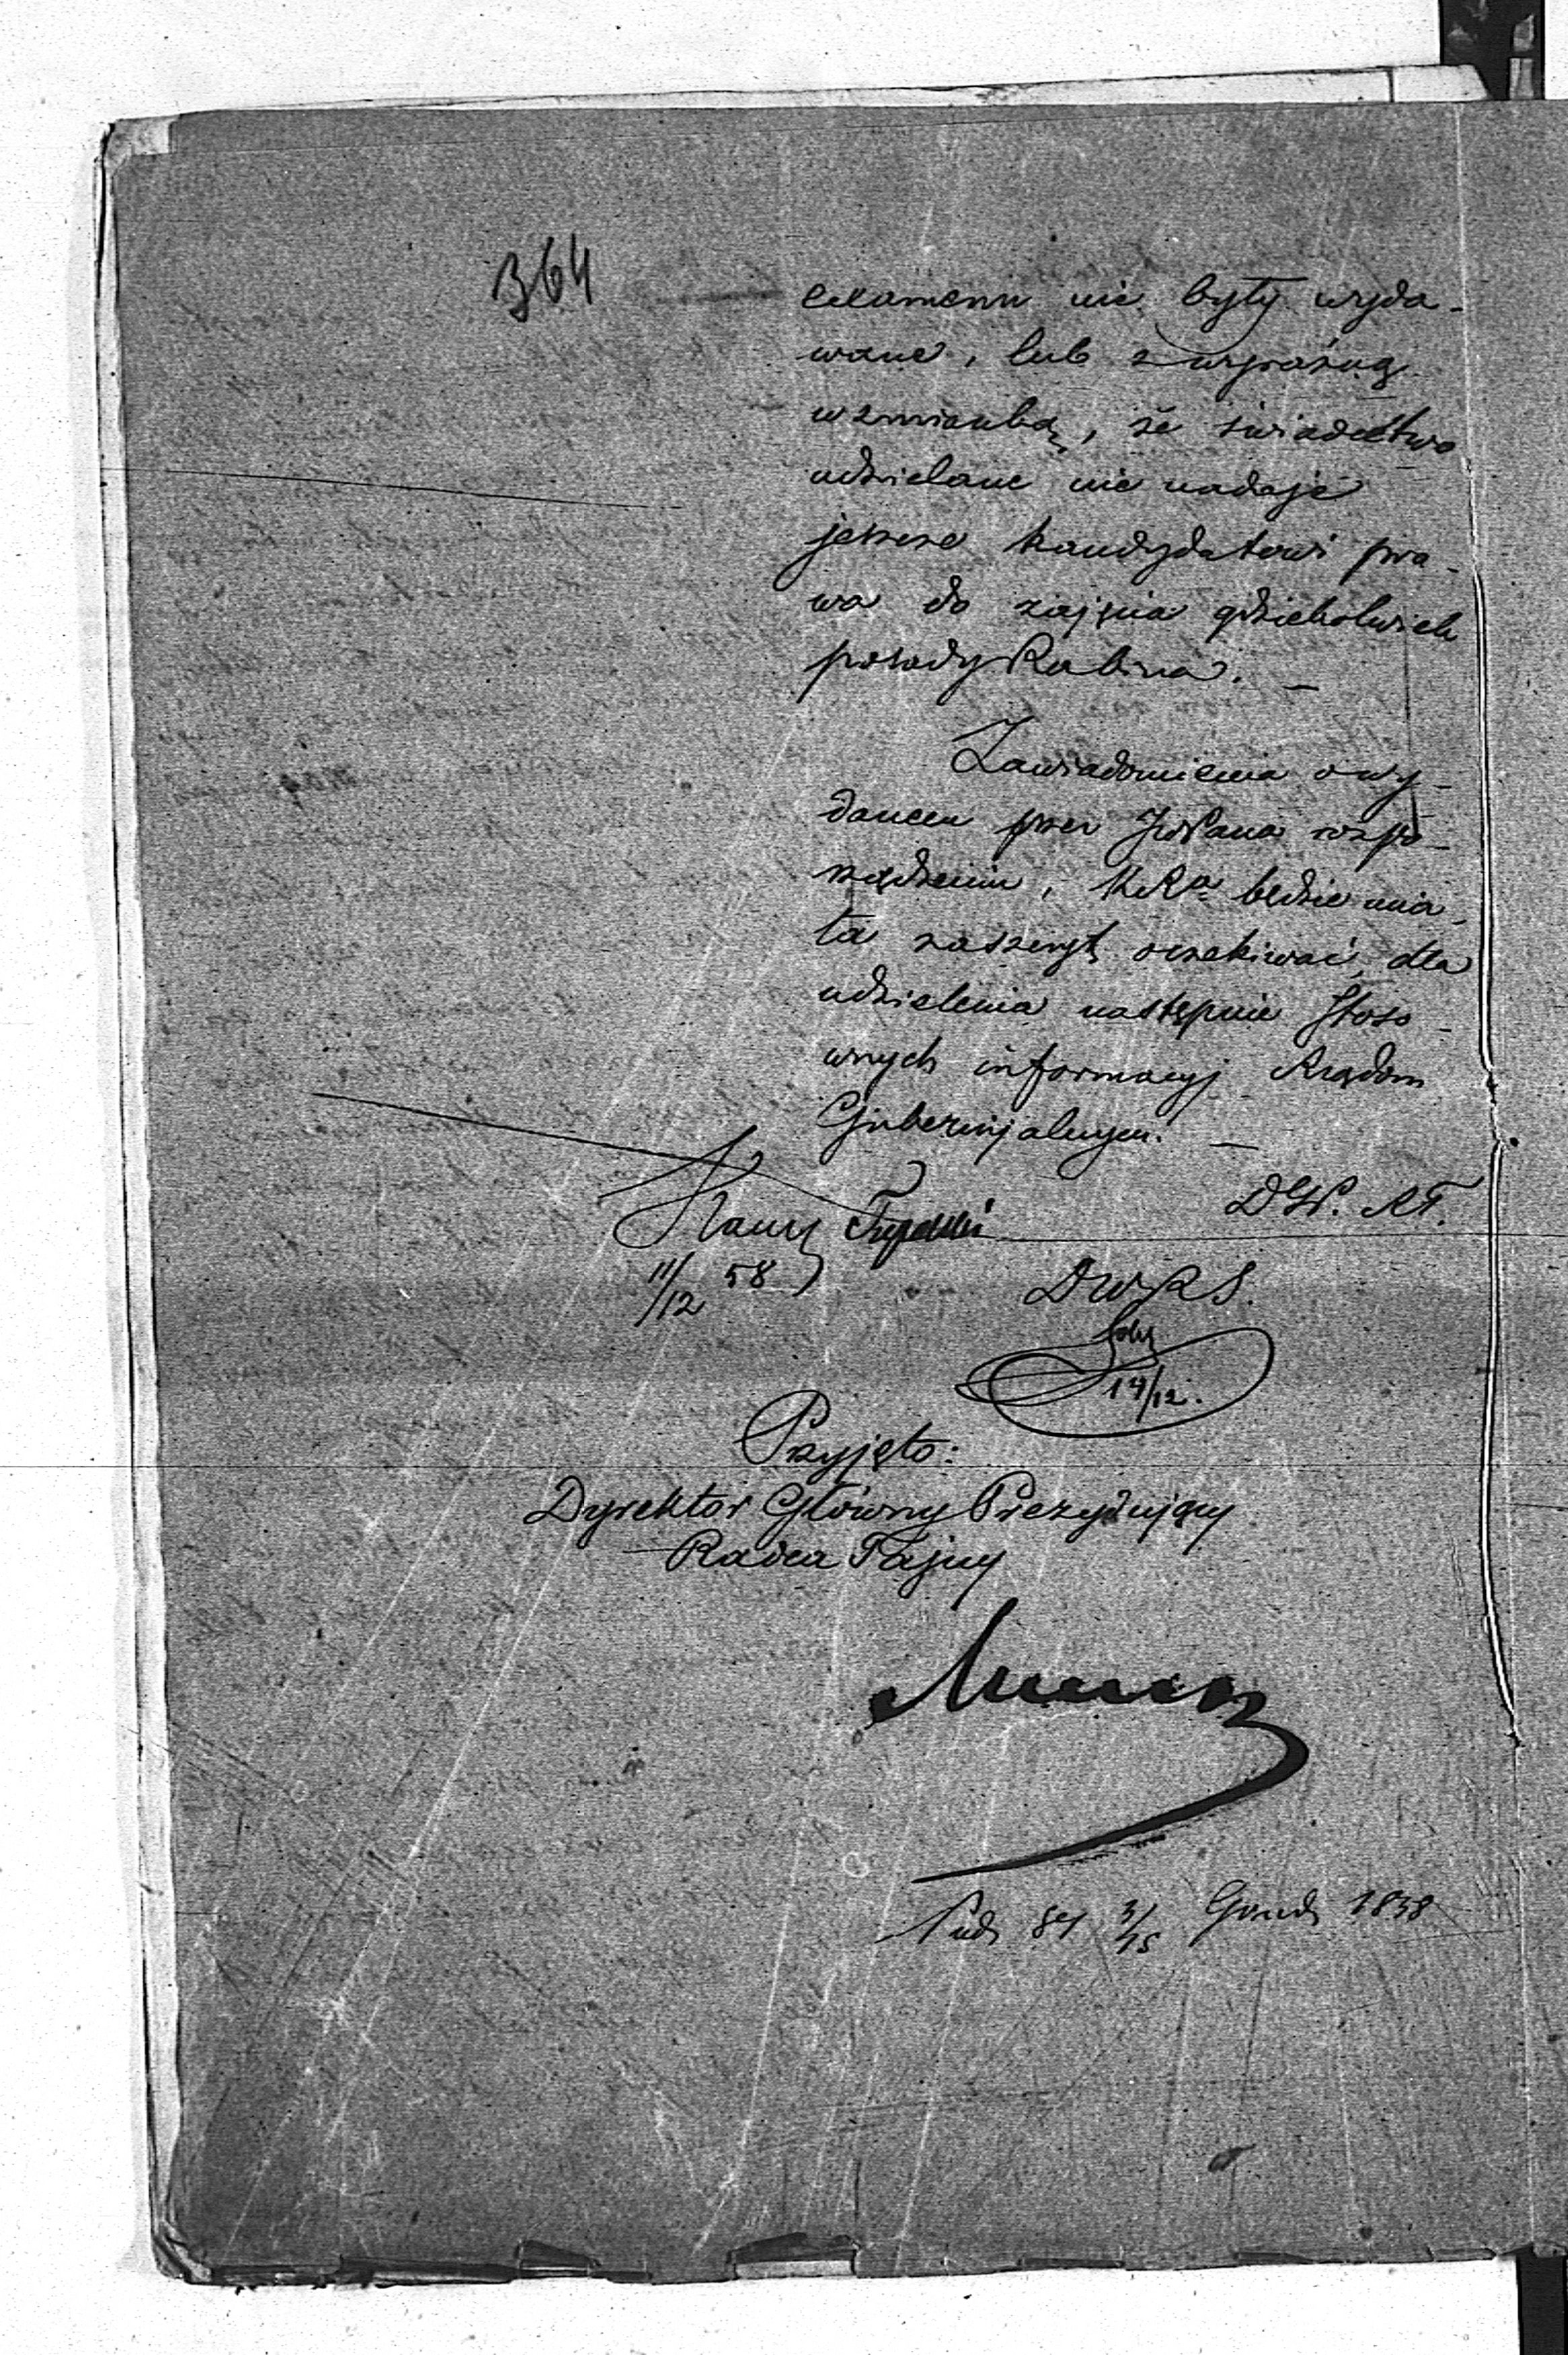 364
examenu nie były wyda-
wane, lub z wyraźną
wzmianką, że świadectwo
udzielane nie nadaje
jeszcze kandydatowi pra-
wa do zajęcia gdziekolwiek
posady Rabina. —
Zawiadomienia o wy-
danem przez JWPana rozpo-
rządzeniu, KRa będzie mia-
ła zaszczyt oczekiwać, dla
udzielenia następnie stoso-
wnych informacyj Rządom
Gubernjalnym. —
DGP.
11/12 58
DWRS.
14/12.
Przyjęto:
Dyrektor Główny Prezydujący
Radca Tajny
3/15 1858